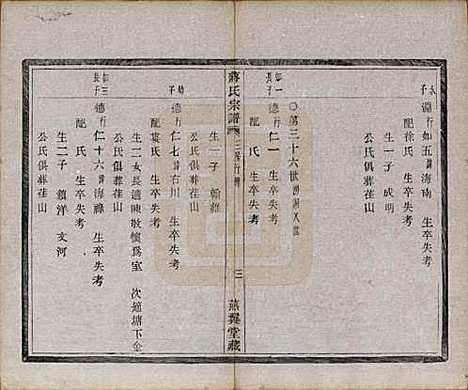 永子
溫行如五諱海南 生卒失考
配徐氏 生卒失考
生一子 成明
公氏俱葬荏山
○第三十六世
如一長子
德行仁一 生卒失考
配 氏 生卒失考
蔣氏宗譜
三
燕翼堂藏
子
德行仁七諱右川 生卒失考
配婁氏 生卒失考
生二女長適陳敬慎爲室 次適塘下金
公氏俱葬荏山
如三長子
德行仁十六諱海祿 生卒失考
配 氏 生卒失考
生二子 顯洋 文河
公氏俱葬荏山